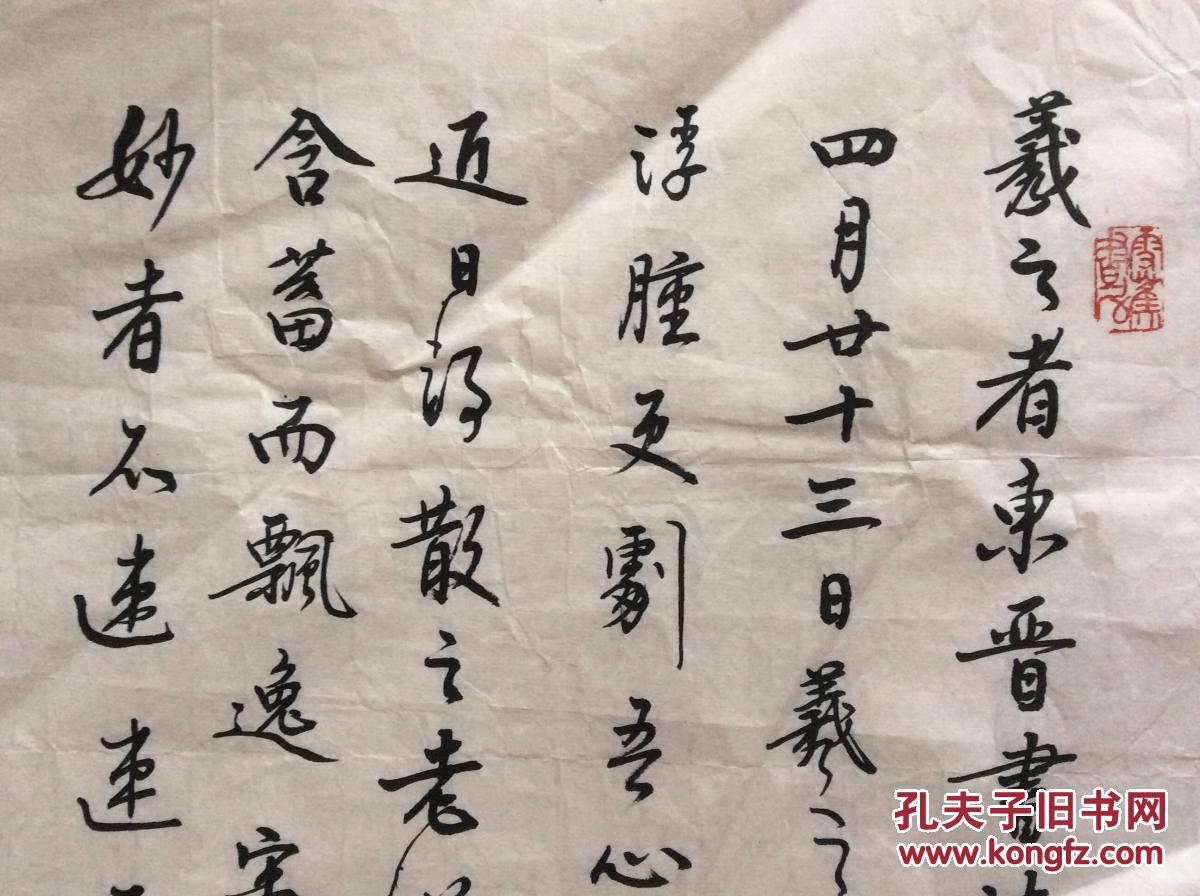 羲之者東晋書
四月廿十三日羲之
浮腫更劇吾心
近日得散之老
含蓄而飄逸
妙者不速速
孔夫子旧书网
www.kongfz.com